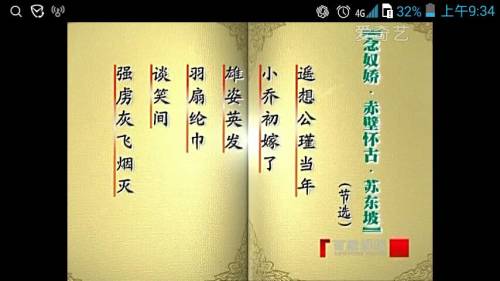 4G 32% 上午9:34
爱奇艺
【念奴娇·赤壁怀古·苏东坡】
(节选)
遥想公瑾当年
小乔初嫁了
雄姿英发
羽扇纶巾
谈笑间
强虏灰飞烟灭